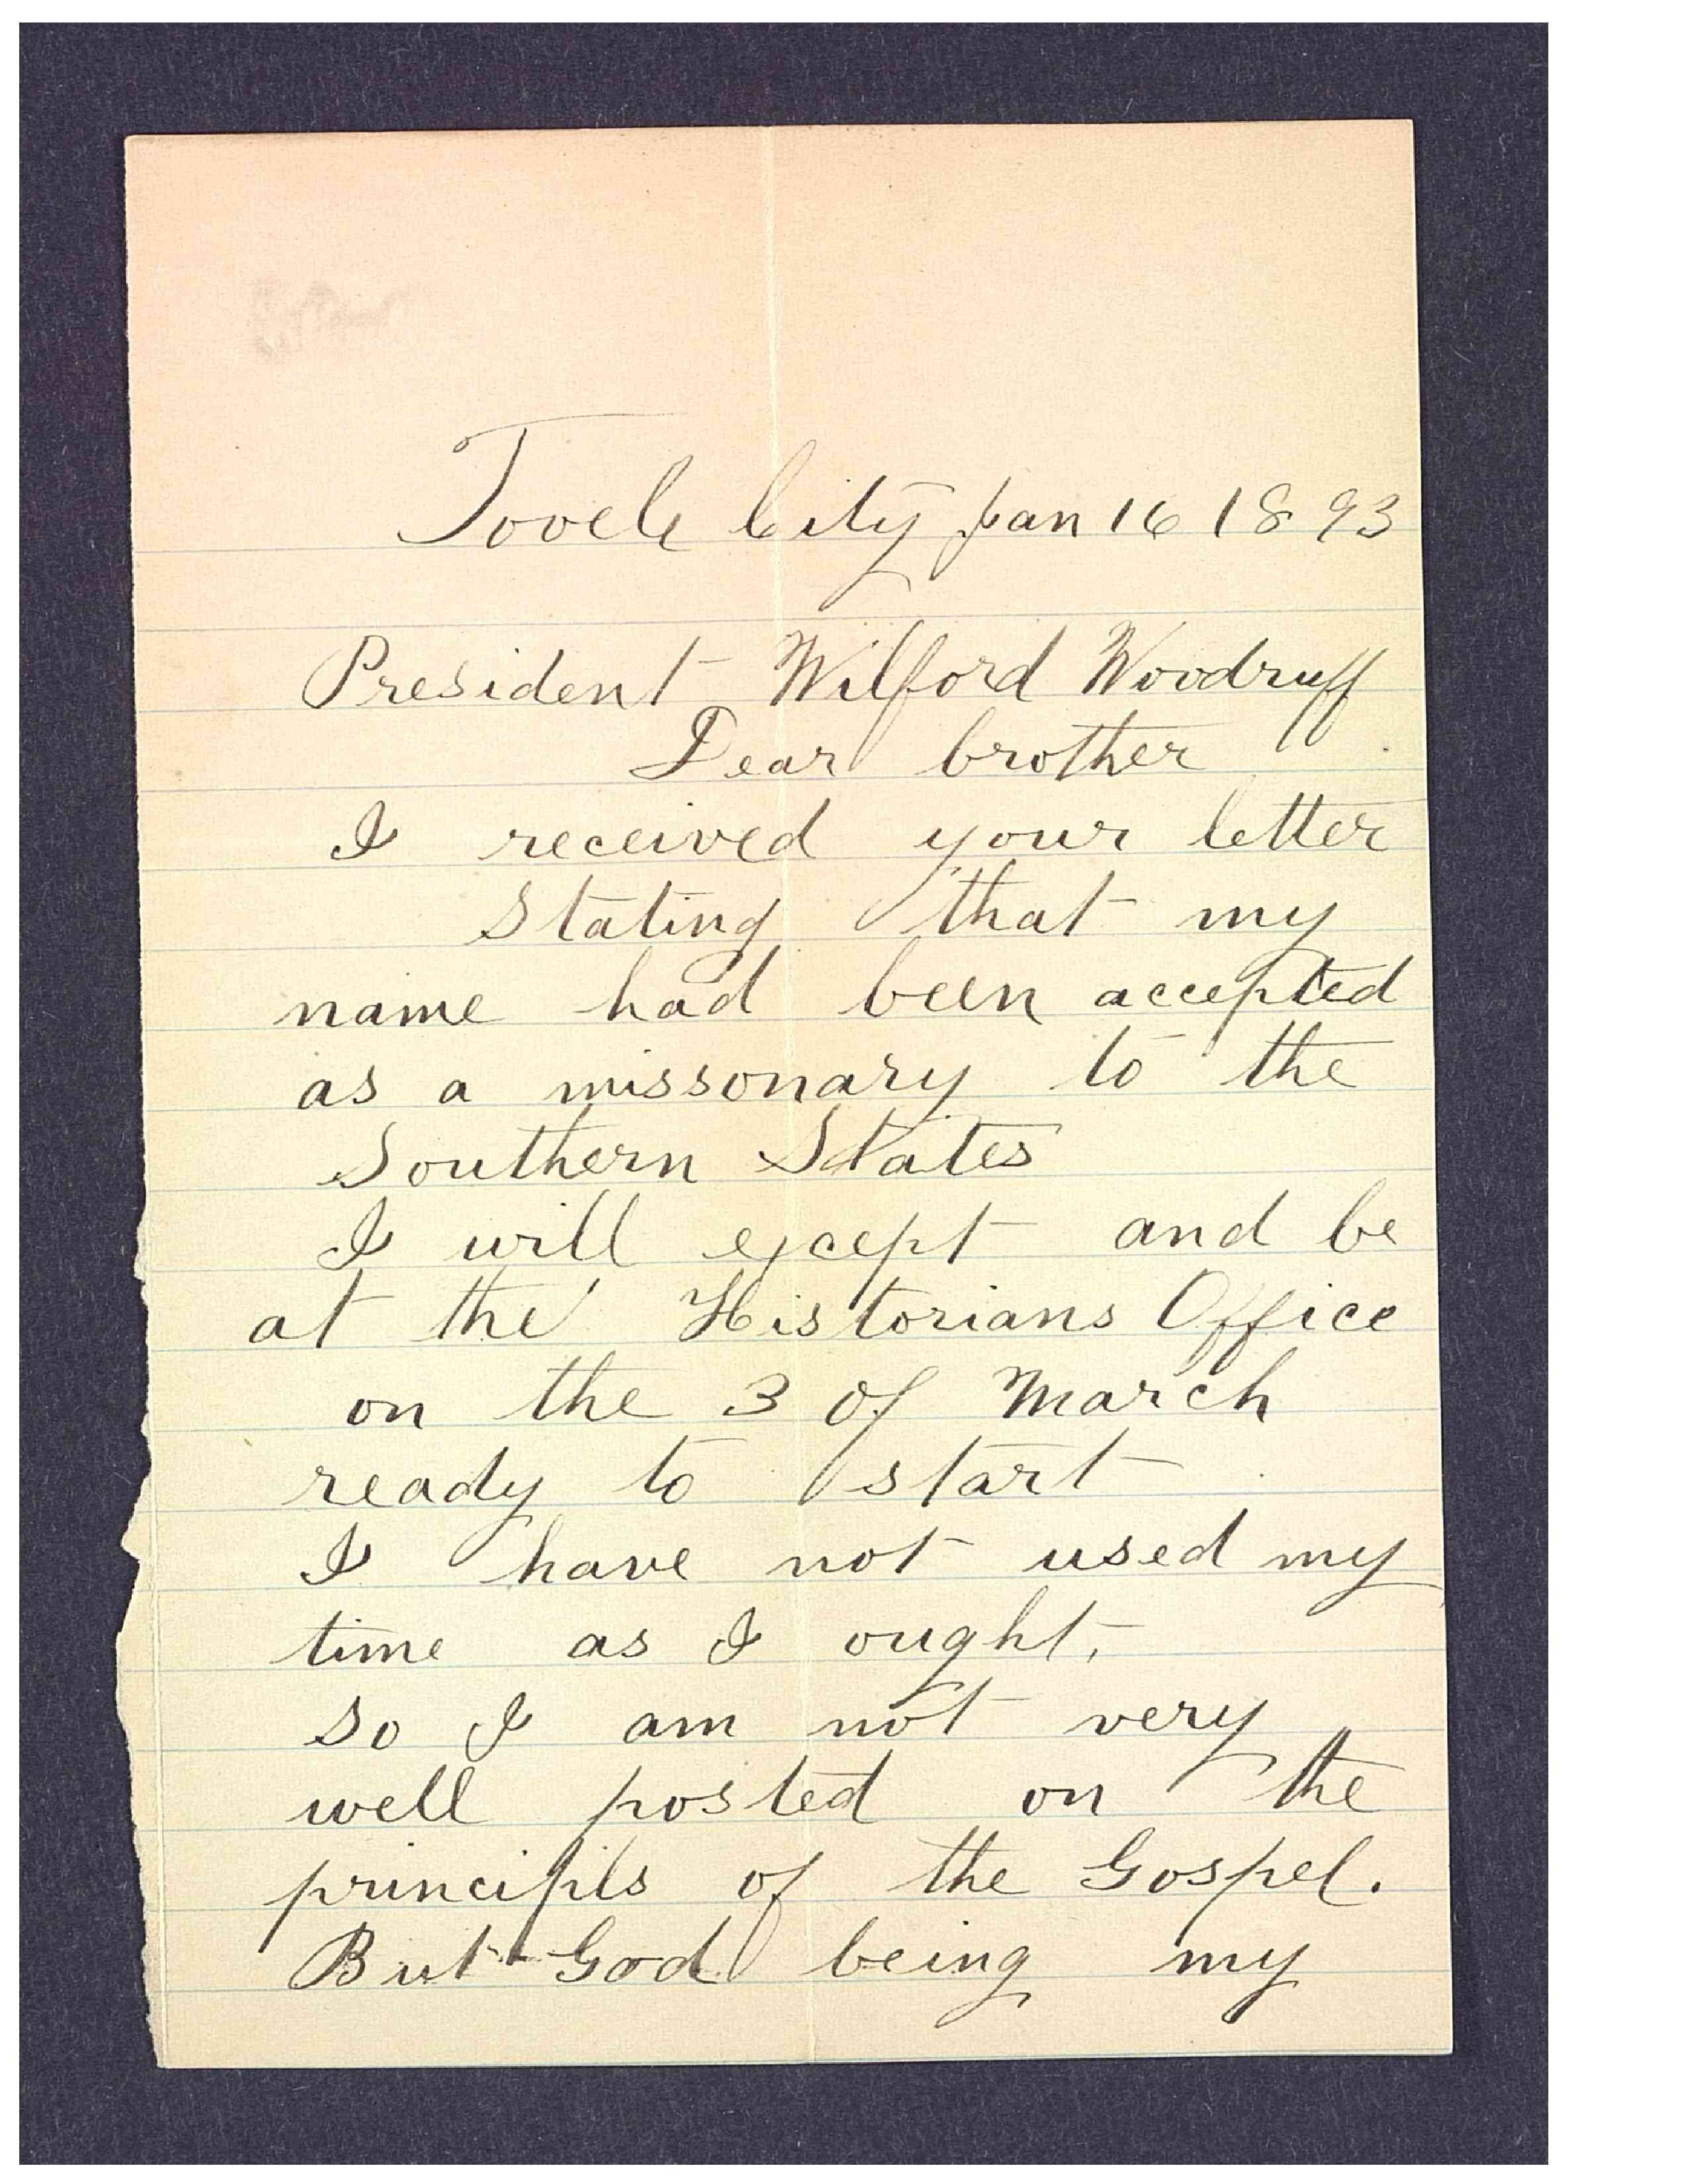 Tooele City Jan 16 1893
President Wilford Woodruff
Dear brother
I received your letter
Stating that my
name had been accepted
as a missonary to the
Southern States
I will except and be
at the Historians Office
on the 3 of March
ready to start
I have not used my
time as I ought,
so I am not very
well posted on the
principils of the Gospel.
But God being my